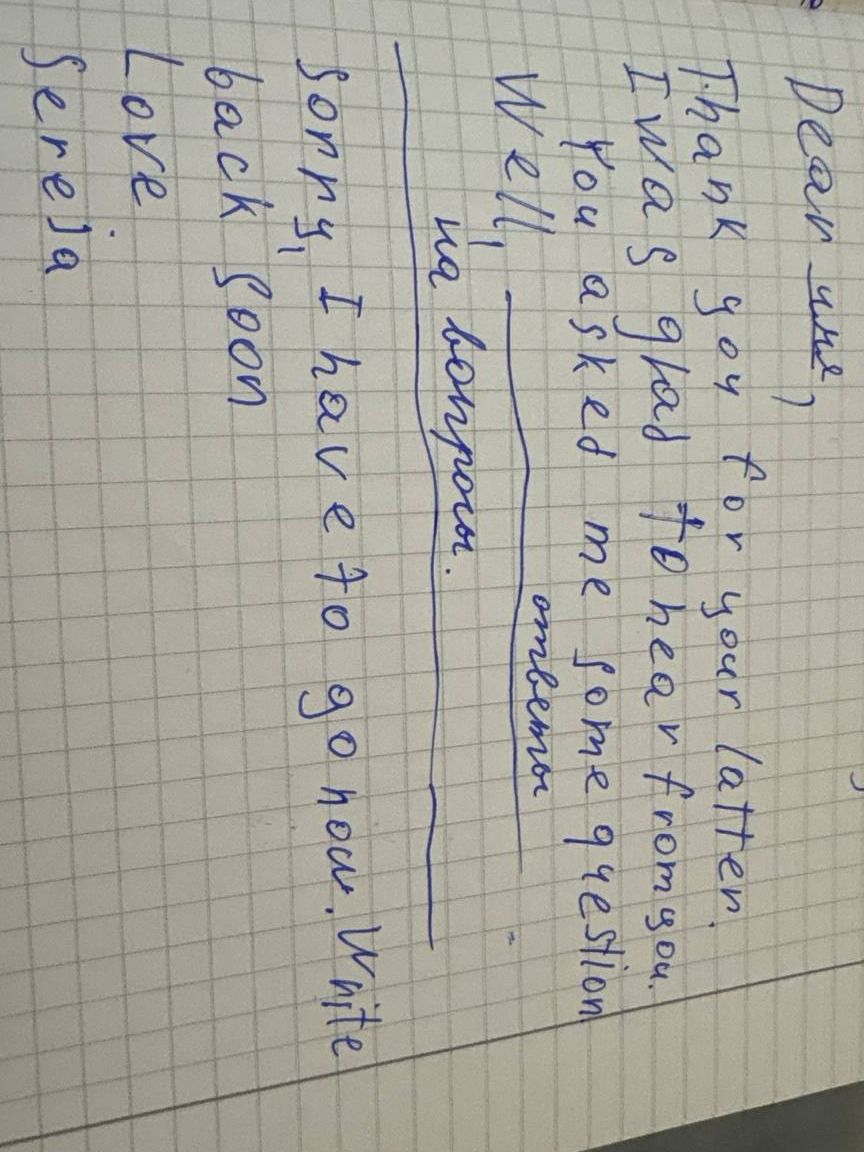 Dear имя,
Thank you for your latter.
I was glad to hear from you.
You asked me some question
Well, ответы
на вопросы.
Sorry, I have to go now. Write
back soon
Love
Sereja